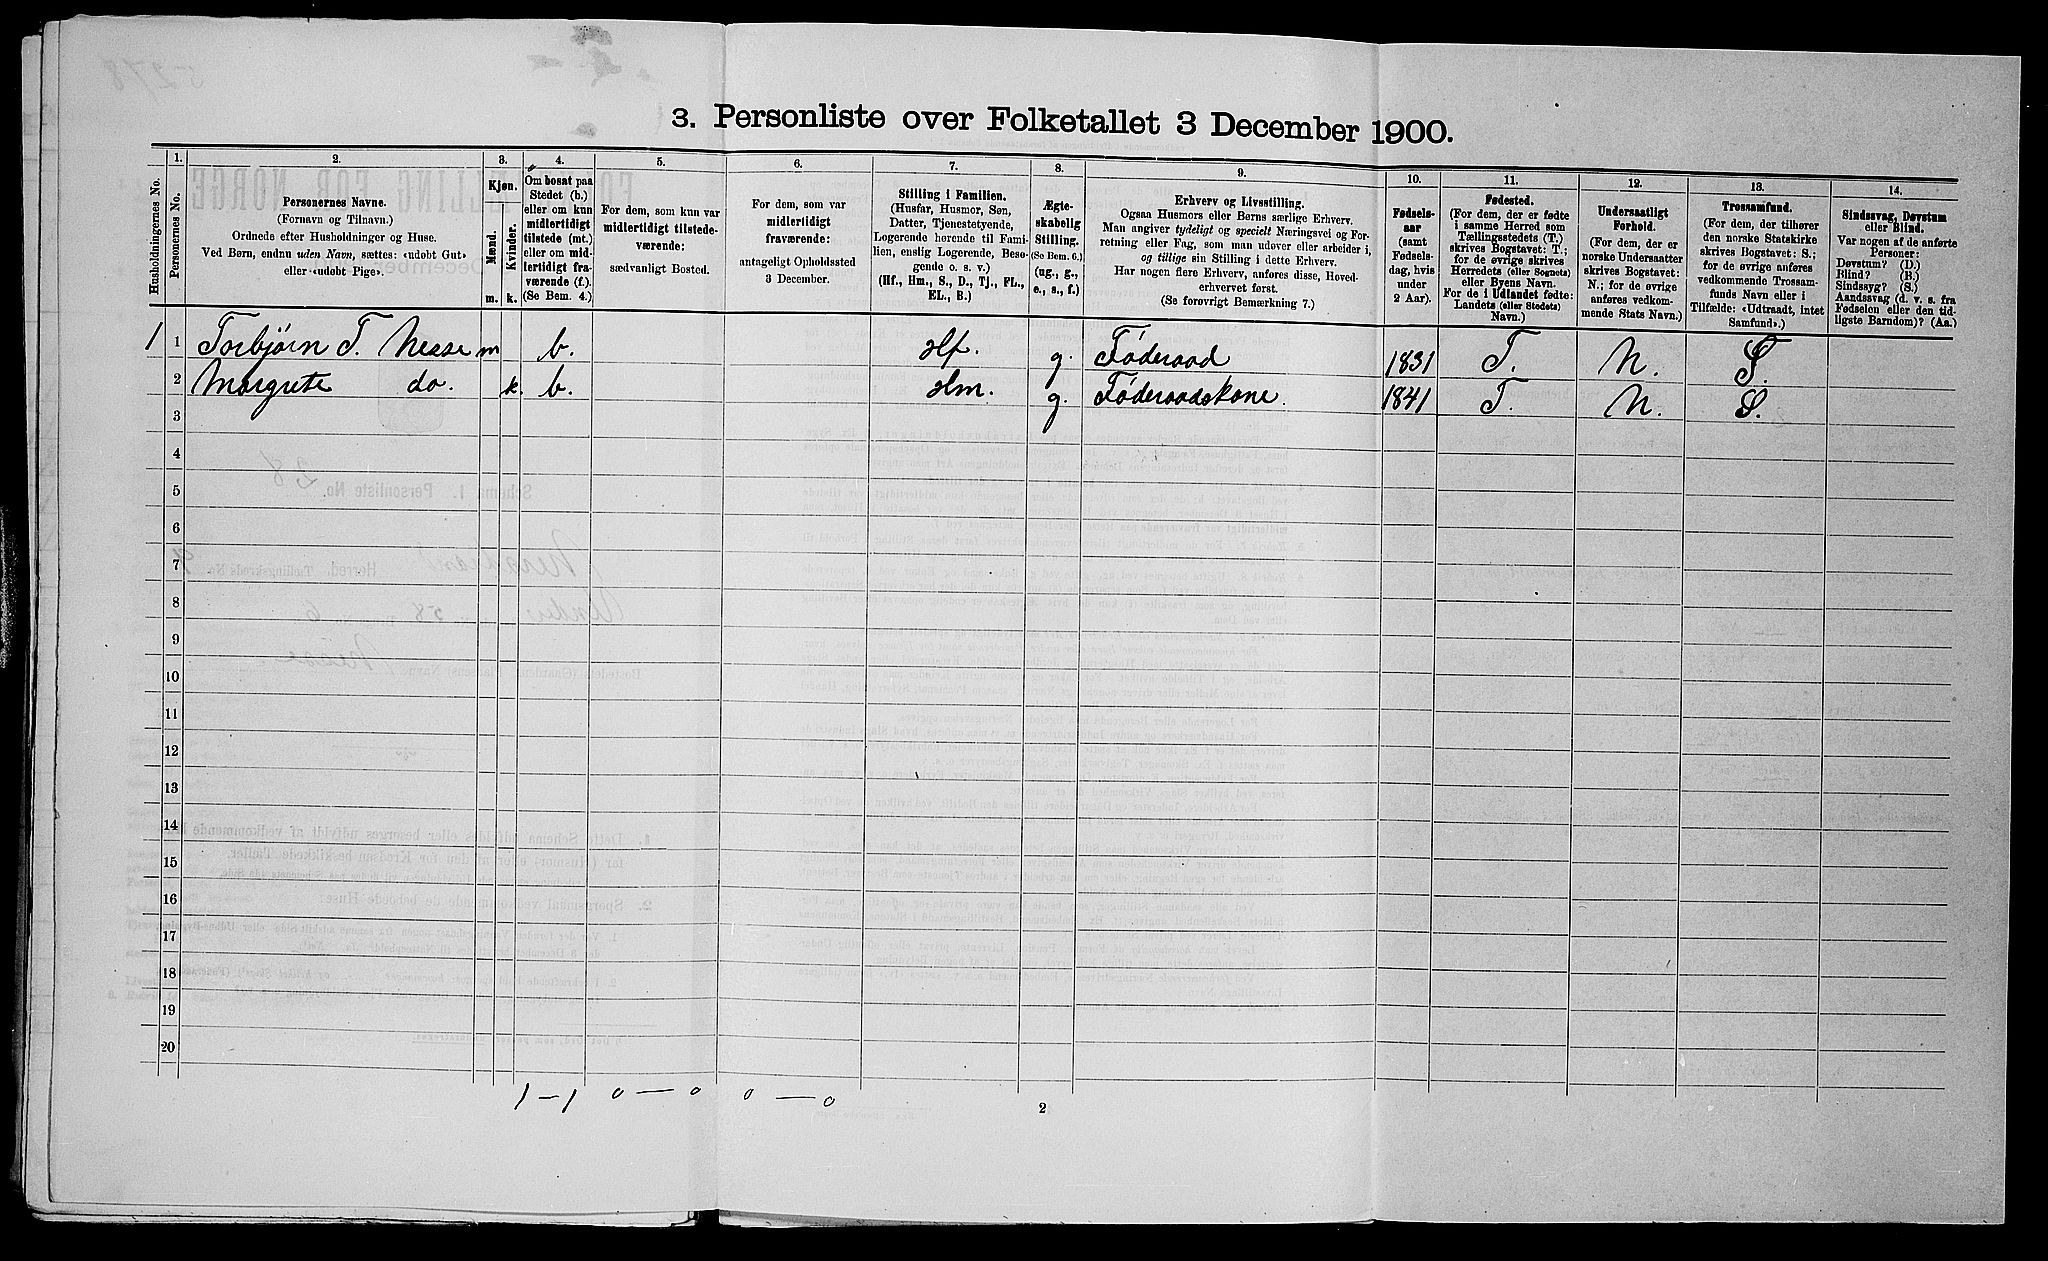 3. Personliste over Folketallet 3 December 1900.
Husholdningernes No.
1.
Personernes No.
2.
Personernes Navne.
(Fornavn og Tilnavn.)
Ordnede efter Husholdninger og Huse.
Ved Børn, endnu uden Navn, sættes: «udøbt Gut»
eller «udøbt Pige».
3.
Kjøn.
Mænd.
Kvinder.
m.
k.
4.
Om bosat paa
Stedet (b.)
eller om kun
midlertidigt
tilstede (mt.)
eller om mid-
lertidigt fra-
værende (f.).
(Se Bem. 4.)
5.
For dem, som kun var
midlertidigt tilstede-
værende:
sædvanligt Bosted.
6.
For dem, som var
midlertidigt
fraværende:
antageligt Opholdssted
3 December.
7.
Stilling i Familien.
(Husfar, Husmor, Søn,
Datter, Tjenestetyende,
Logerende hørende til Fami-
lien, enslig Logerende, Besø-
gende o. s. v.)
(Hf., Hm., S., D., Tj., FL.,
EL., B.)
8.
Ægte-
skabelig
Stilling.
(Se Bem. 6.)
(ug., g.,
e., s., f.)
9.
Erhverv og Livsstilling.
Ogsaa Husmors eller Børns særlige Erhverv.
Man angiver tydeligt og specielt Næringsvei og For-
retning eller Fag, som man udøver eller arbeider i,
og tillige sin Stilling i dette Erhverv.
Har nogen flere Erhverv, anføres disse, Hoved-
erhvervet først.
(Se forøvrigt Bemærkning 7.)
10.
Fødsels-
aar
(samt
Fødsels-
dag, hvis
under
2 Aar).
11.
Fødested.
(For dem, der er fødte
i samme Herred som
Tællingsstedets (T.)
skrives Bogstavet: T.;
for de øvrige skrives
Herredets (eller Sognets)
eller Byens Navn.
For de i Udlandet fødte:
Landets (eller Stedets)
Navn.)
12.
Undersaatligt
Forhold.
(For dem, der er
norske Undersaatter
skrives Bogstavet:
N.; for de øvrige
anføres vedkom-
mende Stats Navn.)
13.
Trossamfund.
(For dem, der tilhører
den norske Statskirke
skrives Bogstavet: S.;
for de øvrige anføres
vedkommende Trossam-
funds Navn eller i
Tilfælde: «Udtraadt, intet
Samfund».)
14.
Sindssvag, Døvstum
eller Blind.
Var nogen af de anførte
Personer:
Døvstum? (D.)
Blind? (B.)
Sindssyg? (S.)
Aandssvag (d. v. s. fra
Fødselen eller den tid-
ligste Barndom)? (Aa.)
1 1 Torbjørn T. Nesse m b. Hf. g. Føderaad 1831 T. N. S.
2 Margrete do. k. b. Hm. g. Føderaadskone. 1841 T. N. S.
3
4
5
6
7
8
9
10
11
12
13
14
15
16
17
18
19
20
1 – 1 0 — 0 0 — 0
2